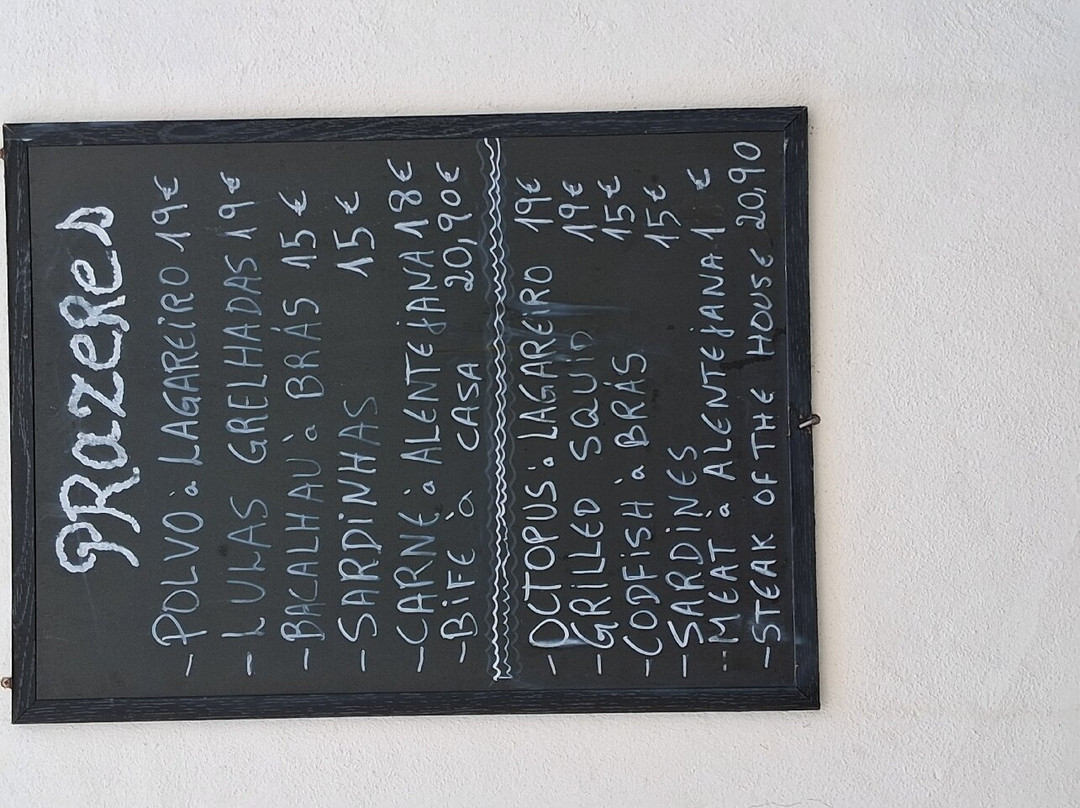 PRazeRes
- POLVO à LAGAREiRO 19€
- LULAS GRELHADAS 19€
- BACALHAU à BRÁS 15€
- SARDiNHAS 15€
- CARNE à ALENTEjANA 18€
- BiFE à CASA 20,90€
- OCTOPUS à LAGAREiRO 19€
- GRiLLED SQUiD 19€
- CODFiSH à BRÁS 15€
- SARDiNES 15€
- MEAT à ALENTEjANA 1 €
- STEAK OF THE HOUSE 20,90